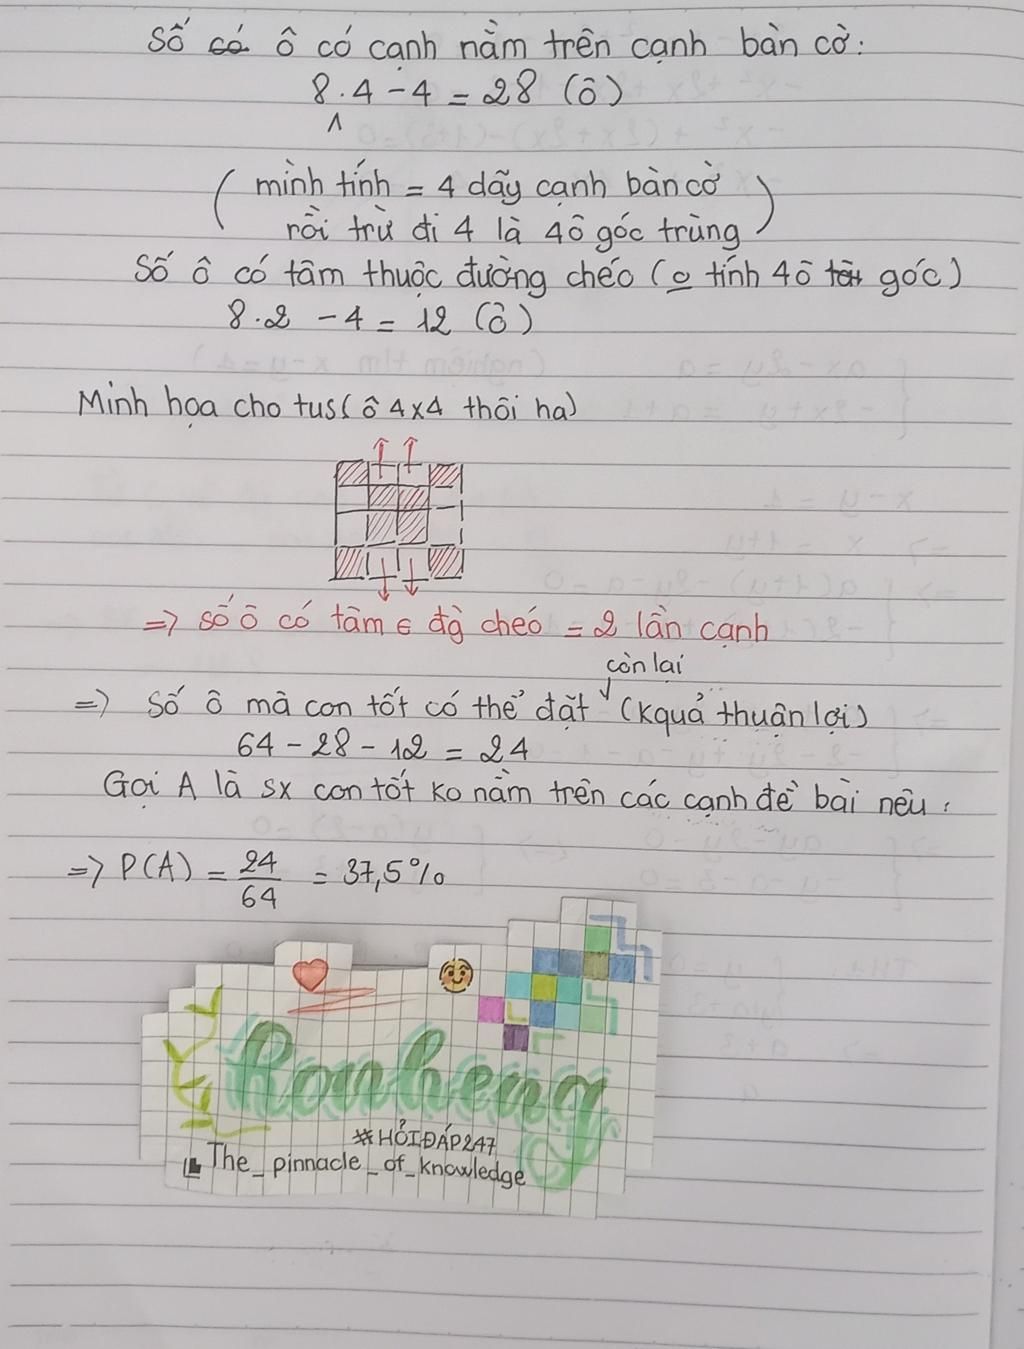 Số có ô có cạnh nằm trên cạnh bàn cờ:
8.4 - 4 = 28 (ô)
(mình tính = 4 dãy cạnh bàn cờ
rồi trừ đi 4 là 4ô góc trùng)
Số ô có tâm thuộc đường chéo (o tính 4ô góc)
8.2 - 4 = 12 (ô)
Minh họa cho tus (ô 4x4 thôi ha)
=> số ô có tâm ∈ đg chéo = 2 lần cạnh
còn lại
=> Số ô mà con tốt có thể đặt (Kquả thuận lợi)
64 - 28 - 12 = 24
Gọi A là sx con tốt ko nằm trên các cạnh đề bài nêu.
=> P(A) = 24/64 = 37,5%
Ronheng
#HỎIĐÁP247
The_pinnacle_of_knowledge